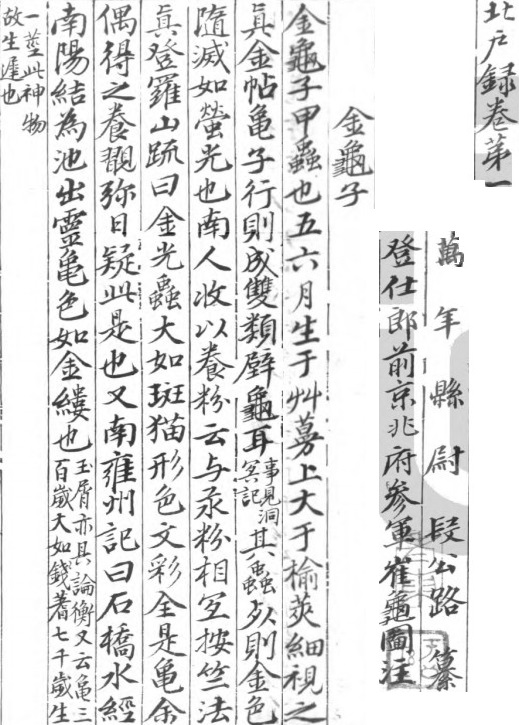 北户録卷第一
萬年縣尉段公路纂
登仕郎前京兆府參軍崔龜圖注
金龜子
金龜子甲蟲也五六月生于艸蔓上大于榆莢細視之
真金帖亀子行則成雙類壁龜耳事見洞冥記其蟲死則金色
隨滅如螢光也南人收以養粉云与汞粉相宜按竺法
真登羅山䟽曰金光蟲大如斑猫形色文彩全是亀余
偶得之養翫弥日疑此是也又南雍州記曰石橋水經
南陽結為池出靈亀色如金縷也玉屑亦具論衡又云亀三百歲大如錢蓍七千歲生
一莖此神物故生遲也